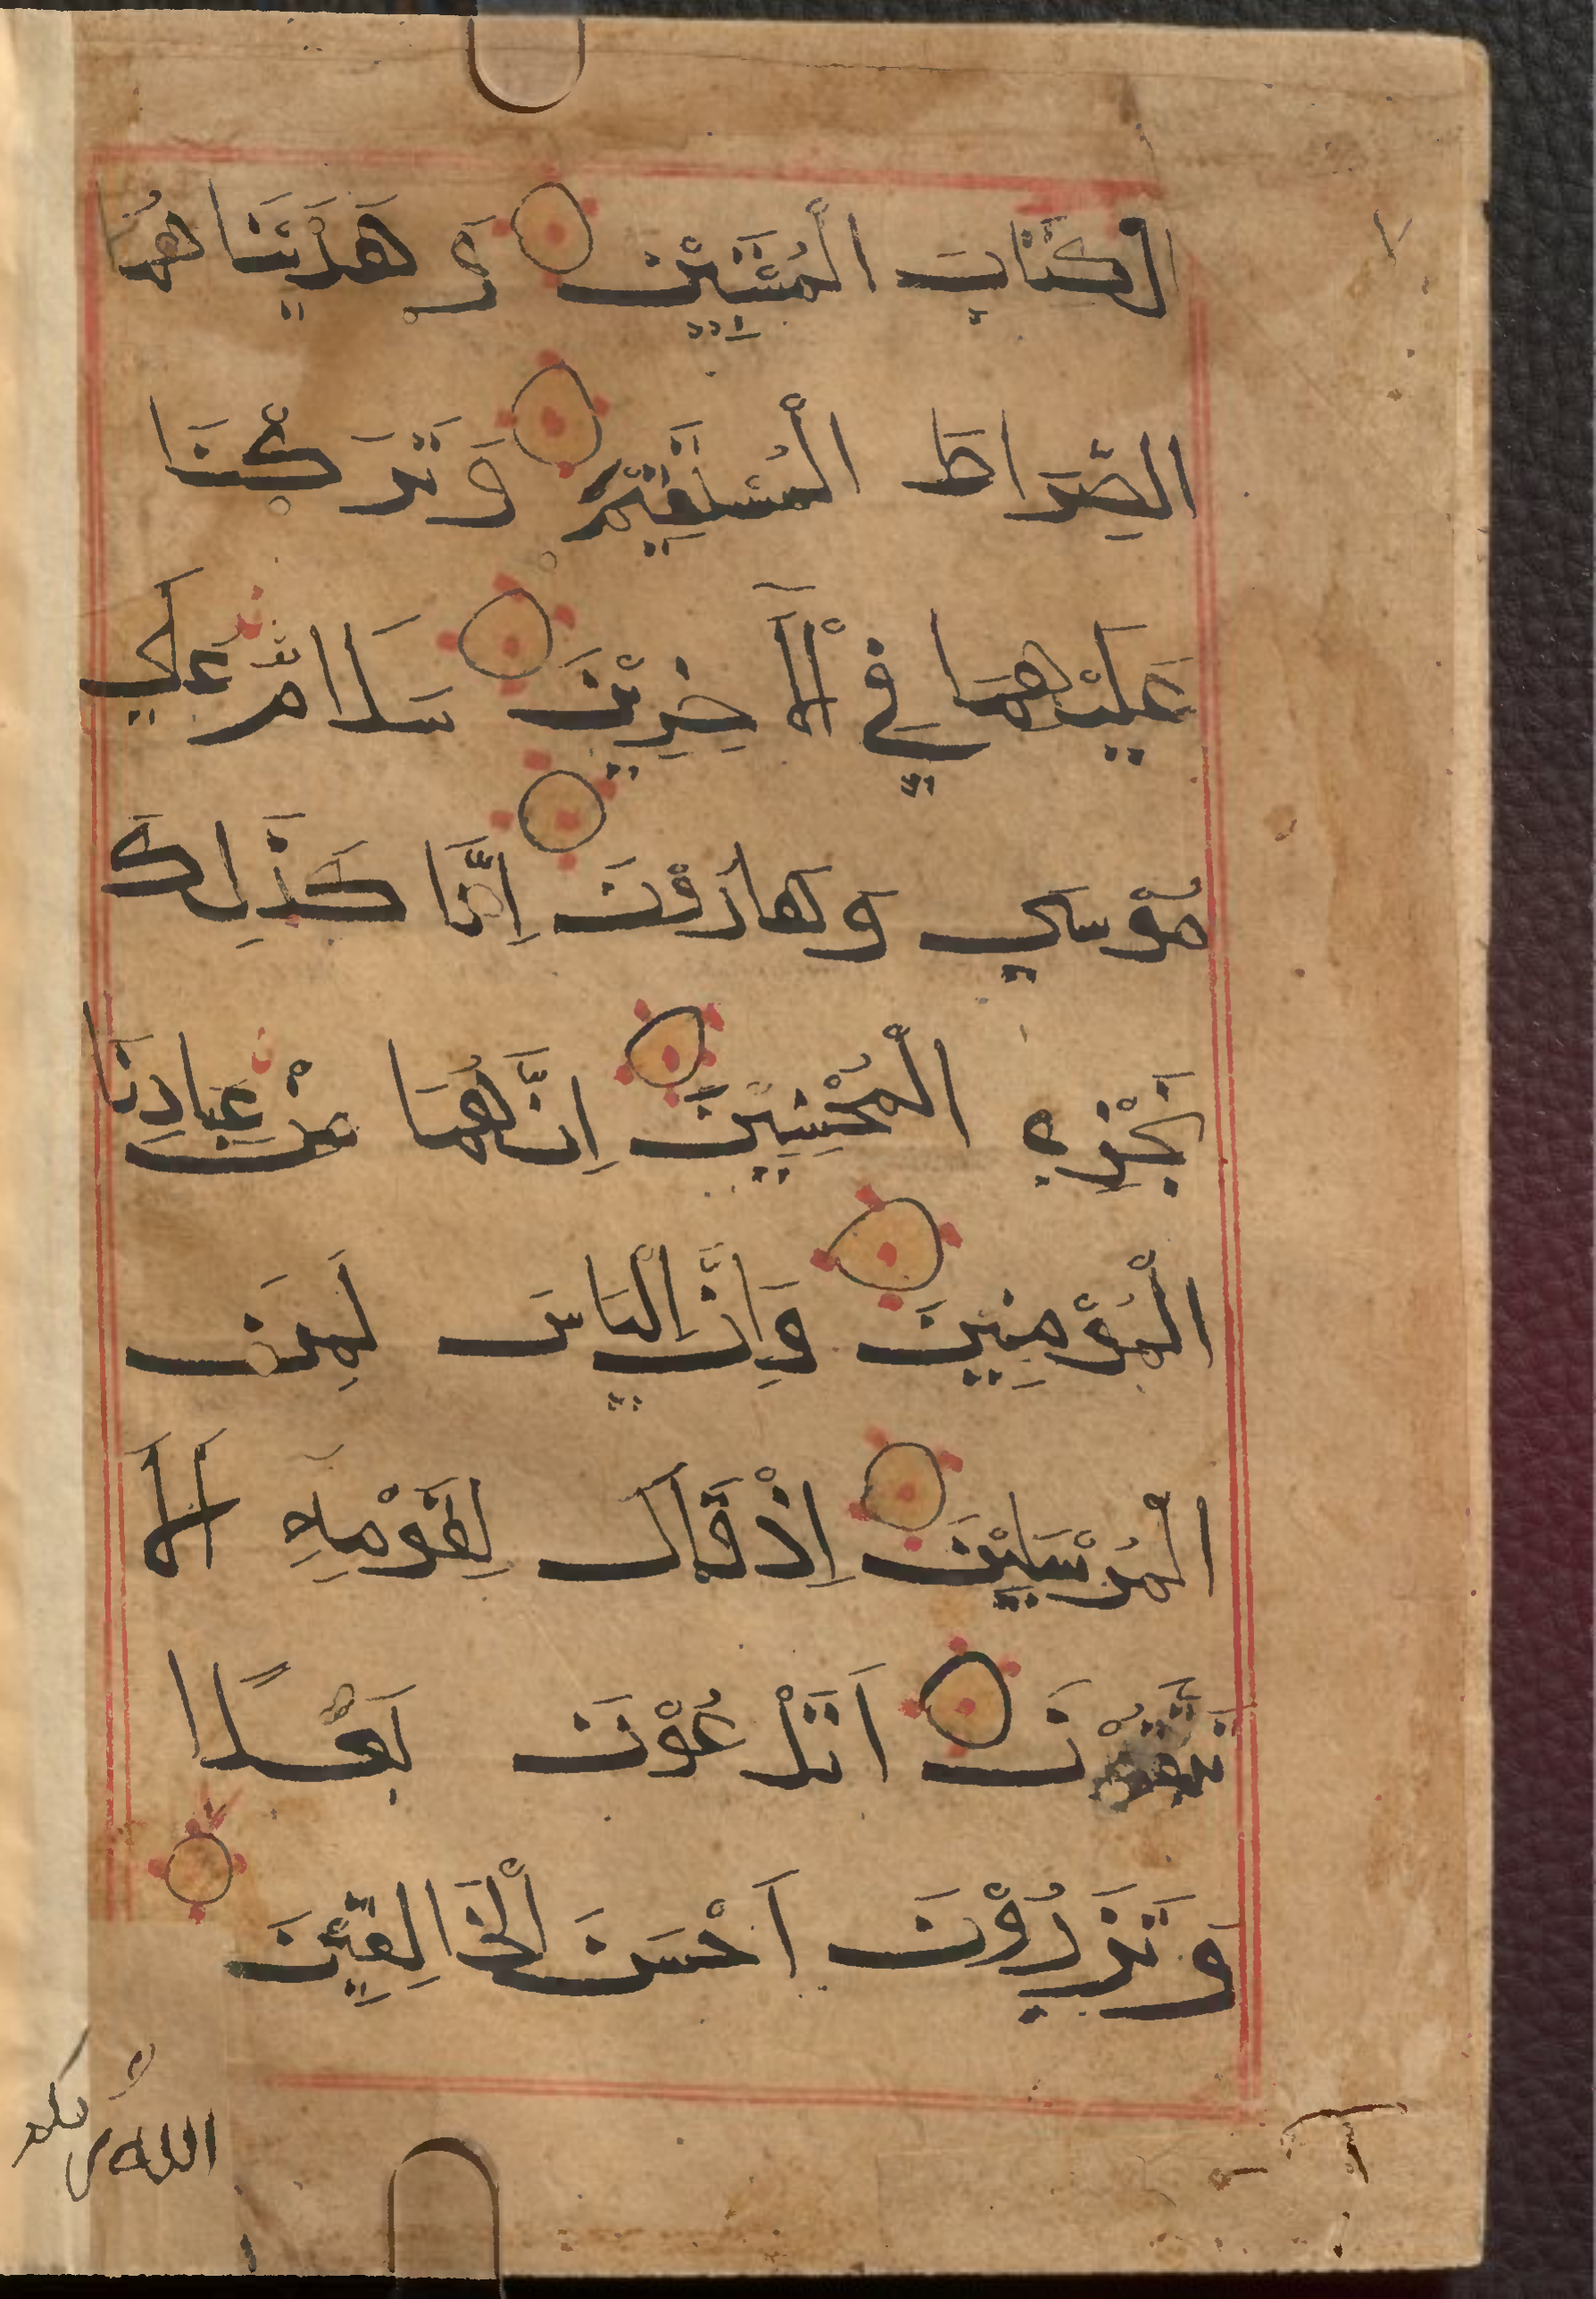 الكتَابَ الْمُسْتَبِيْنَ وَ هَدَيْنَا هُمَا
الصِّرَاطَ الْمُسْتَقِيْمَ وَ تَرَكْنَا
عَلَيْهِمَا فِي الْآخِرِيْنَ سَلَامٌ عَلَي
مُوْسَي وَ هَارُوْنَ اِنَّا كَذَلِكَ
نَجْزِي الْمُحْسِنِيْنَ اِنَّهُمَا مِنْ عِبَادِنَا
الْمُؤْمِنِيْنَ وَ اِنَّ اِلْيَاسَ لَمِنَ
الْمُرْسَلِيْنَ اِذْ قَالَ لِقَوْمِهِ اَلَا
تَتَّقُوْنَ اَتَدْعُوْنَ بَعْلًا
وَ تَذَرُوْنَ اَحْسَنَ الْخَالِقِيْنَ
اللهُ ربكم